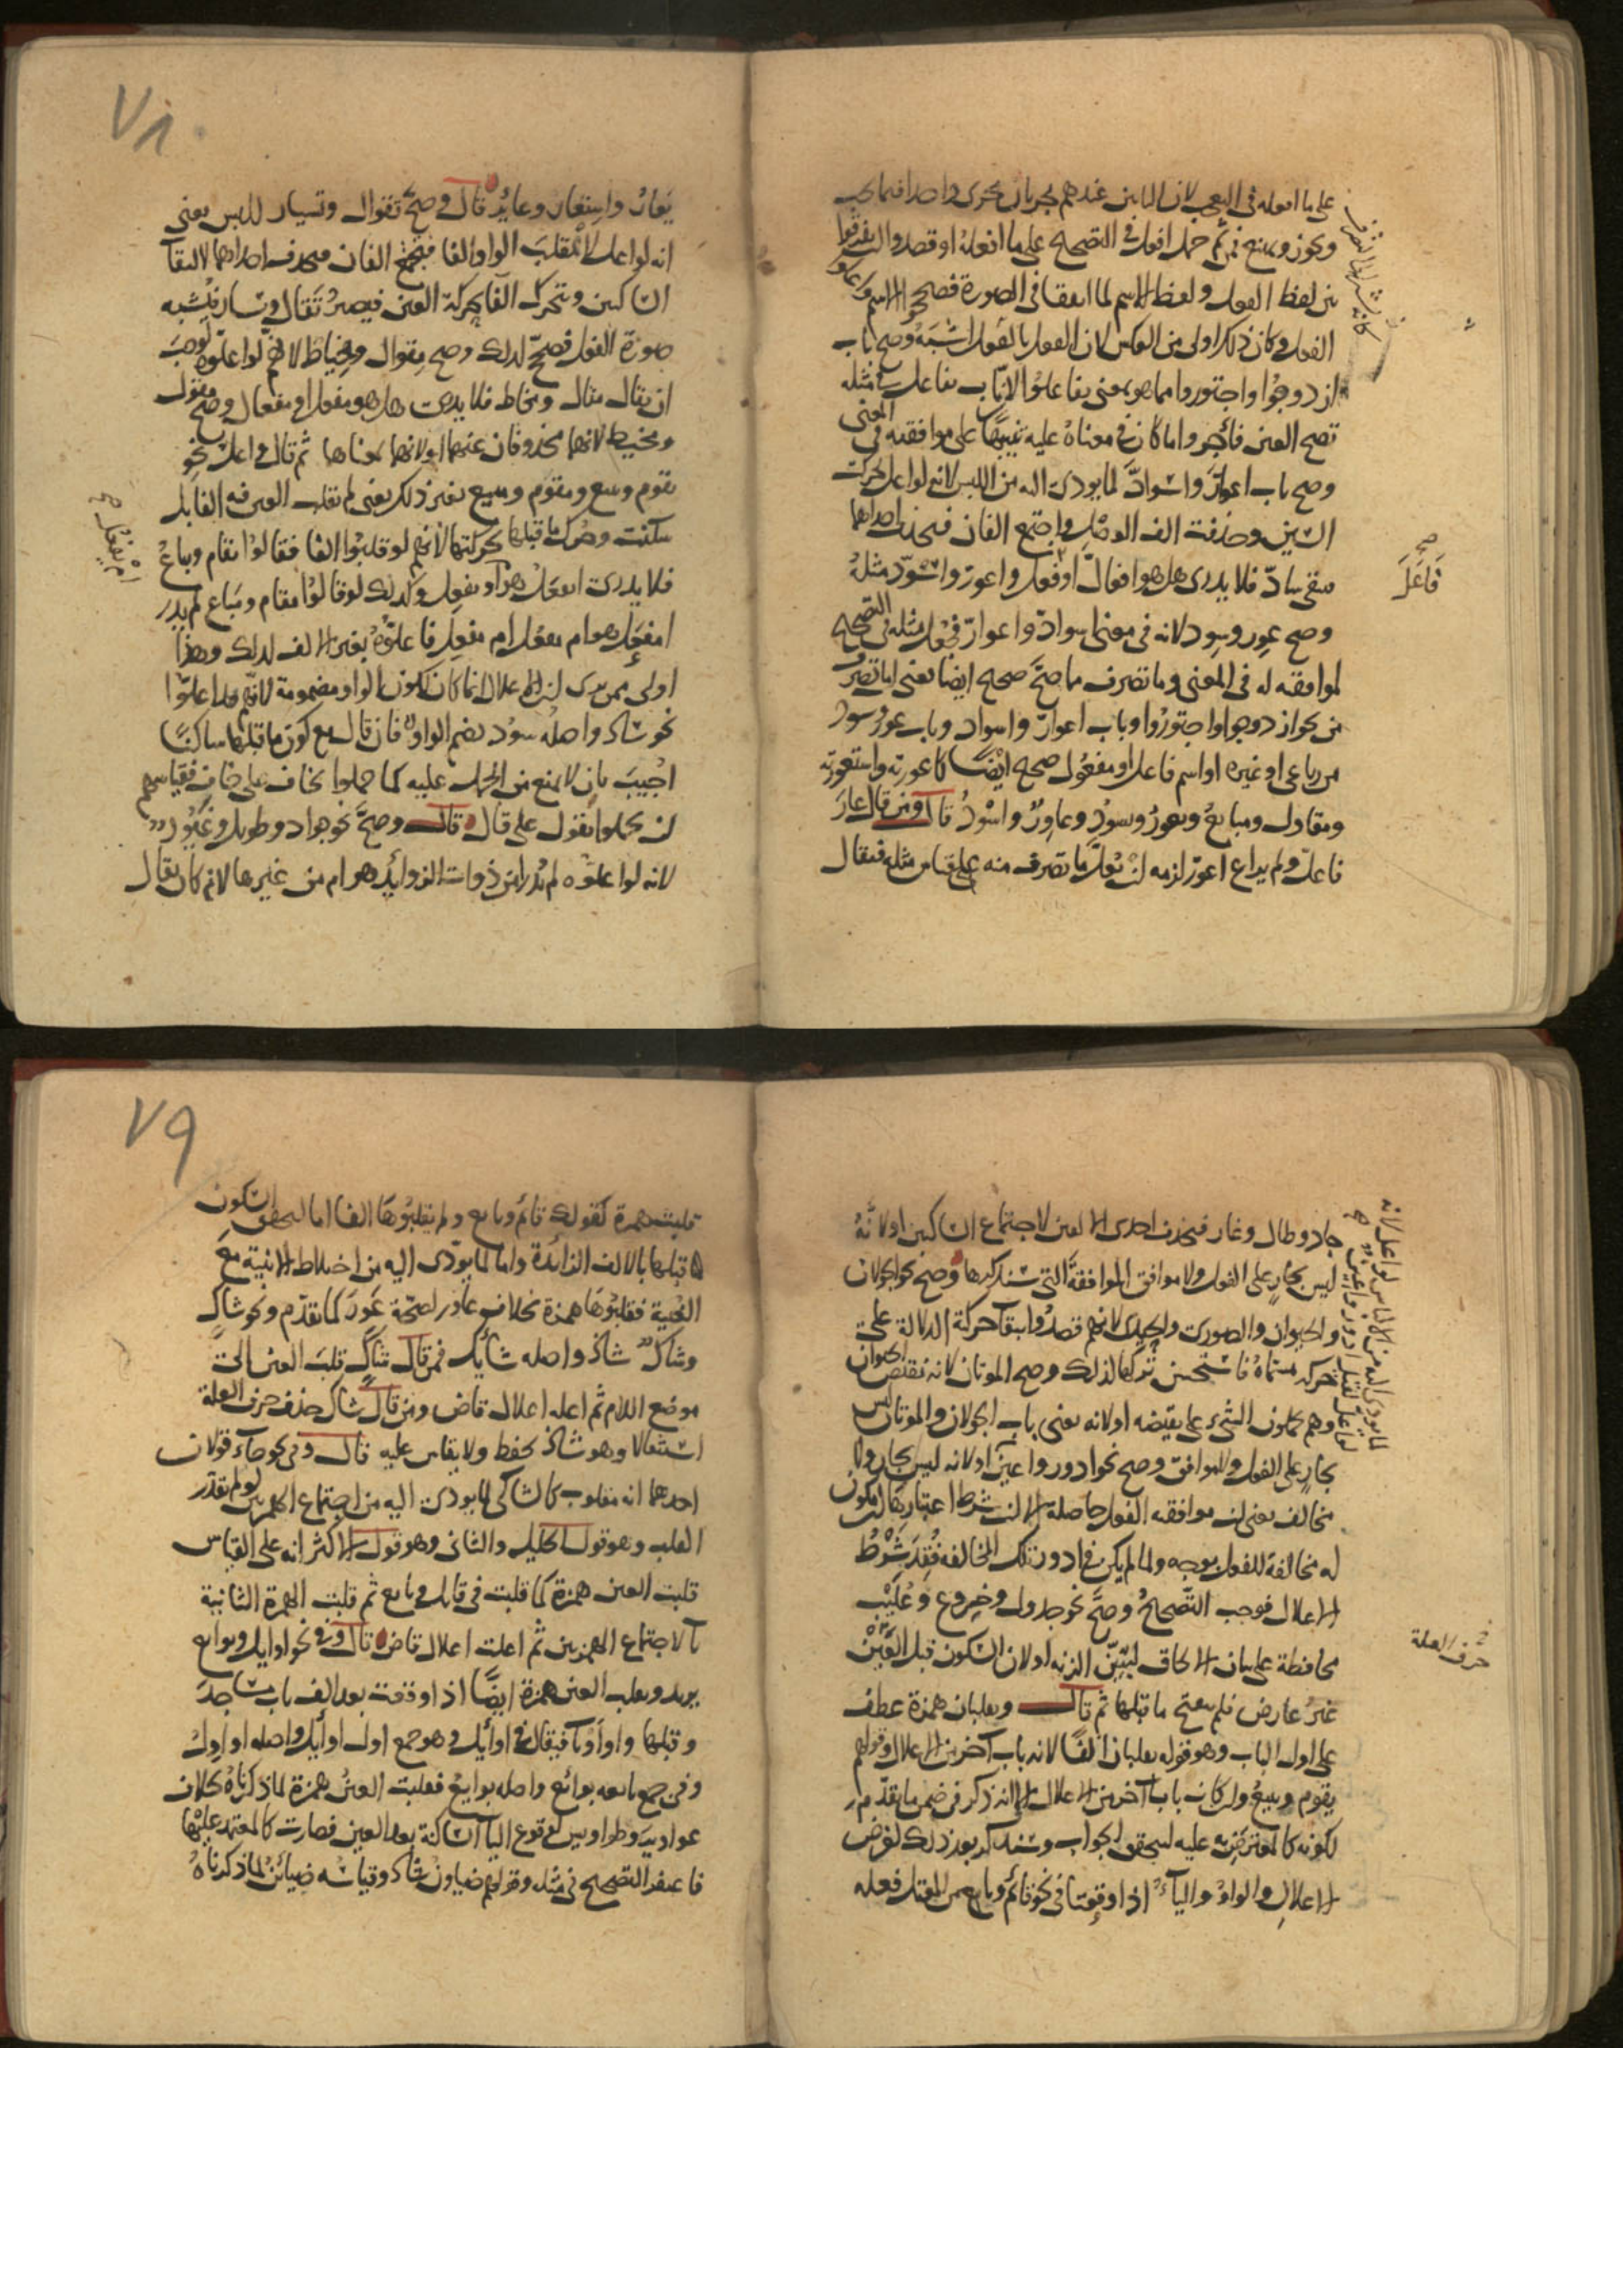 على ما افعله في التعجب لان البابين عندهم يجريان مجرى واحدا فيما يجب
ويجوز ويمتنع فمن ثم حمل افعل في التصحيح على ما افعله او قصدوا ان يفرقوا
بين لفظ الفعل ولفظ الاسم لما اتفقا في الصورة فصححوا الاسم
الفعل وكان ذلك اولى من العكس لان الفعل بالفعل اشبه وصح باب
ازدوجوا واجتوروا مما هو بمعنى تفاعلوا لان باب تفاعل في مثله
تصح العين فاجروا ما كان في معناه عليه تنبيها على موافقته في المعنى
وصح باب اعوار واسواد لما يودى اليه من اللبس لانه لو اعل لحركت
السين وحذفت الف الوصل واجتمع الفان فتحذف احداهما
فيبقى ساد فلا يدرى هل هو افعال او فعل واعور واسود مثله
وصح عور وسود لانه في معنى اسواد واعوار فجعل مثله في التصحيح
لموافقته له في المعنى وما تصرف مما صح صحيح ايضا يعنى ما تصرف
من نحو ازدوجوا واجتوروا وباب اعوار واسواد وباب عور وسود
من رباعى او غيره او اسم فاعل او مفعول صحيح ايضا كاعورته واستعورته
ومقاول ومبايع ويعور ويسود وعاور واسود قال ومن قال عار
فاعل ولم يراع اعور لزمه ان يعل ما تصرف منه على قياس مثله فيقال
صح
فاعل
٧٨
يعار واستعار وعاير قال وصح تقوال وتسيار للبس يعنى
انه لو اعل لانقلبت الواو الفا فتجتمع الفان فيحذف احداهما لالتقاء
الساكنين وتحرك الفا بحركة العين فيصير تقال وتسار فيشبه
صورة الفعل فصح لذلك وصح مقوال ومخياط لانهم لو اعلوه لوجب
ان يقال مقال ومخاط فلا يدرى هل هو مفعل او مفعال وصح مقول
ومخيط لانهما محذوفان عنهما او لانهما بمعناها ثم قال واعل نحو
يقوم ويبيع ومقوم ومبيع بغير ذلك يعنى لم تقلب العين فيه الفا بل
سكنت وحرك ما قبلها بحركتها لانهم لو قلبوا الفا فقالوا يقام ويباع
فلا يدرى ايفعل هو او يفعل وكذلك لو قالوا مقام ومباع لم يدر
امفعل هو ام مفعل ام مفعل فاعلوه بغير الالف لذلك وهذا
اولى ممن يرى ان الاعلال انما كان لكون الواو مضمومة لانهم قد اعلوا
نحو شاد واصله سود بضم الواو فان قال مع كون ما قبلها ساكنا
اجيب بان لا يمنع من الحمل عليه كما حملوا يخاف على خاف فقياسهم
ان يحملوا يقول على قال قال وصح نحو جواد وطويل وغيور
لانه لو اعلوه لم يدر امن ذوات الزوائد هو ام من غيرها لانه كان يقال
جاد وطال وغار فتحذف احدى العين لاجتماع الساكنين او لانه
ليس بجار على الفعل ولا موافق الموافقة التى سنذكرها وصح نحو الجولان
والحيوان والصورى والحيدى لانهم قصدوا ابقاء حركته الدلالة على
حركه مسماه فاستحسن تركها لذلك وصح الموتان لانه نقيض الحيوان
وهم يحملون الشيء على نقيضه او لانه يعنى باب الجولان والموتان ليس
بجار على الفعل ولا موافق وصح نحو ادور واعين او لانه ليس بجار ولا
مخالف يعنى ان موافقه الفعل حاصلة الا ان شرط اعتبارها ان يكون
له مخالفة للفعل بوجه ولما لم يكن في ادور تلك المخالفة فقد شرط
الاعلال فوجب التصحيح وصح نحو جدول وخروع وعليب
محافظة على بيان الالحاق ليتبين الزنه او لان السكون قبل العين
غير عارض فلم يفتح ما قبلها ثم قال وتقلبان همزة عطف
على اول الباب وهو قوله تقلبان الفا لانه باب آخر من الاعلال وقولهم
يقوم ويبيع وان كان باب آخر من الاعلال الا انه ذكر في ضمن ما تقدم
لكونه كالمعترض به عليه ليتحقق الجواب وسنذكر بعد ذلك لغرض
الاعلال والواو والياء اذا وقعتا في نحو قائم وبايع من المعتل فعله
حرف العلة
٧٩
قلبت همزة كقولك قائم وبايع ولم يقلبوها الفا اما لتحقق السكون
ما قبلها بالالف الزائدة واما لما يودى اليه من اختلاط الابنية مع
الغنية فقلبوها همزة بخلاف عاور لصحة عور كما تقدم ونحو شاك
وشاك شاذ واصله شايك فمن قال شاك قلب العين الى
موضع اللام ثم اعله اعلال قاض ومن قال شاك حذف حرف العلة
استثقالا وهو شاذ يحفظ ولا يقاس عليه قال وفى نحو جاء قولان
احدهما انه مقلوب كالشاكى لما يودى اليه من اجتماع الهمزتين لو لم تقدر
القلب وهو قول الخليل والثانى وهو قول الاكثر انه على القياس
قلبت العين همزة كما قلبت فى قايل وبايع ثم قلبت الهمزة الثانية
ياء لاجتماع الهمزتين ثم اعلت اعلال قاض قال وفى نحو اوايل وبوايع
يريد وتقلب العين همزة ايضا اذا وقعت بعد الف باب مساجد
وقبلها واو او ياء فيقال فى اوائل وهو جمع اول اوايل واصله اواول
وفى جمع بايعه بوائع واصله بوايع فقلبت العين همزة لما ذكرناه بخلاف
عواوير وطواويس لوقوع الياء الساكنة بعد العين فصارت كالمعتمد عليها
فاغتفر التصحيح فى مثله وقولهم ضياون شاذ وقياسه ضيائن لما ذكرناه